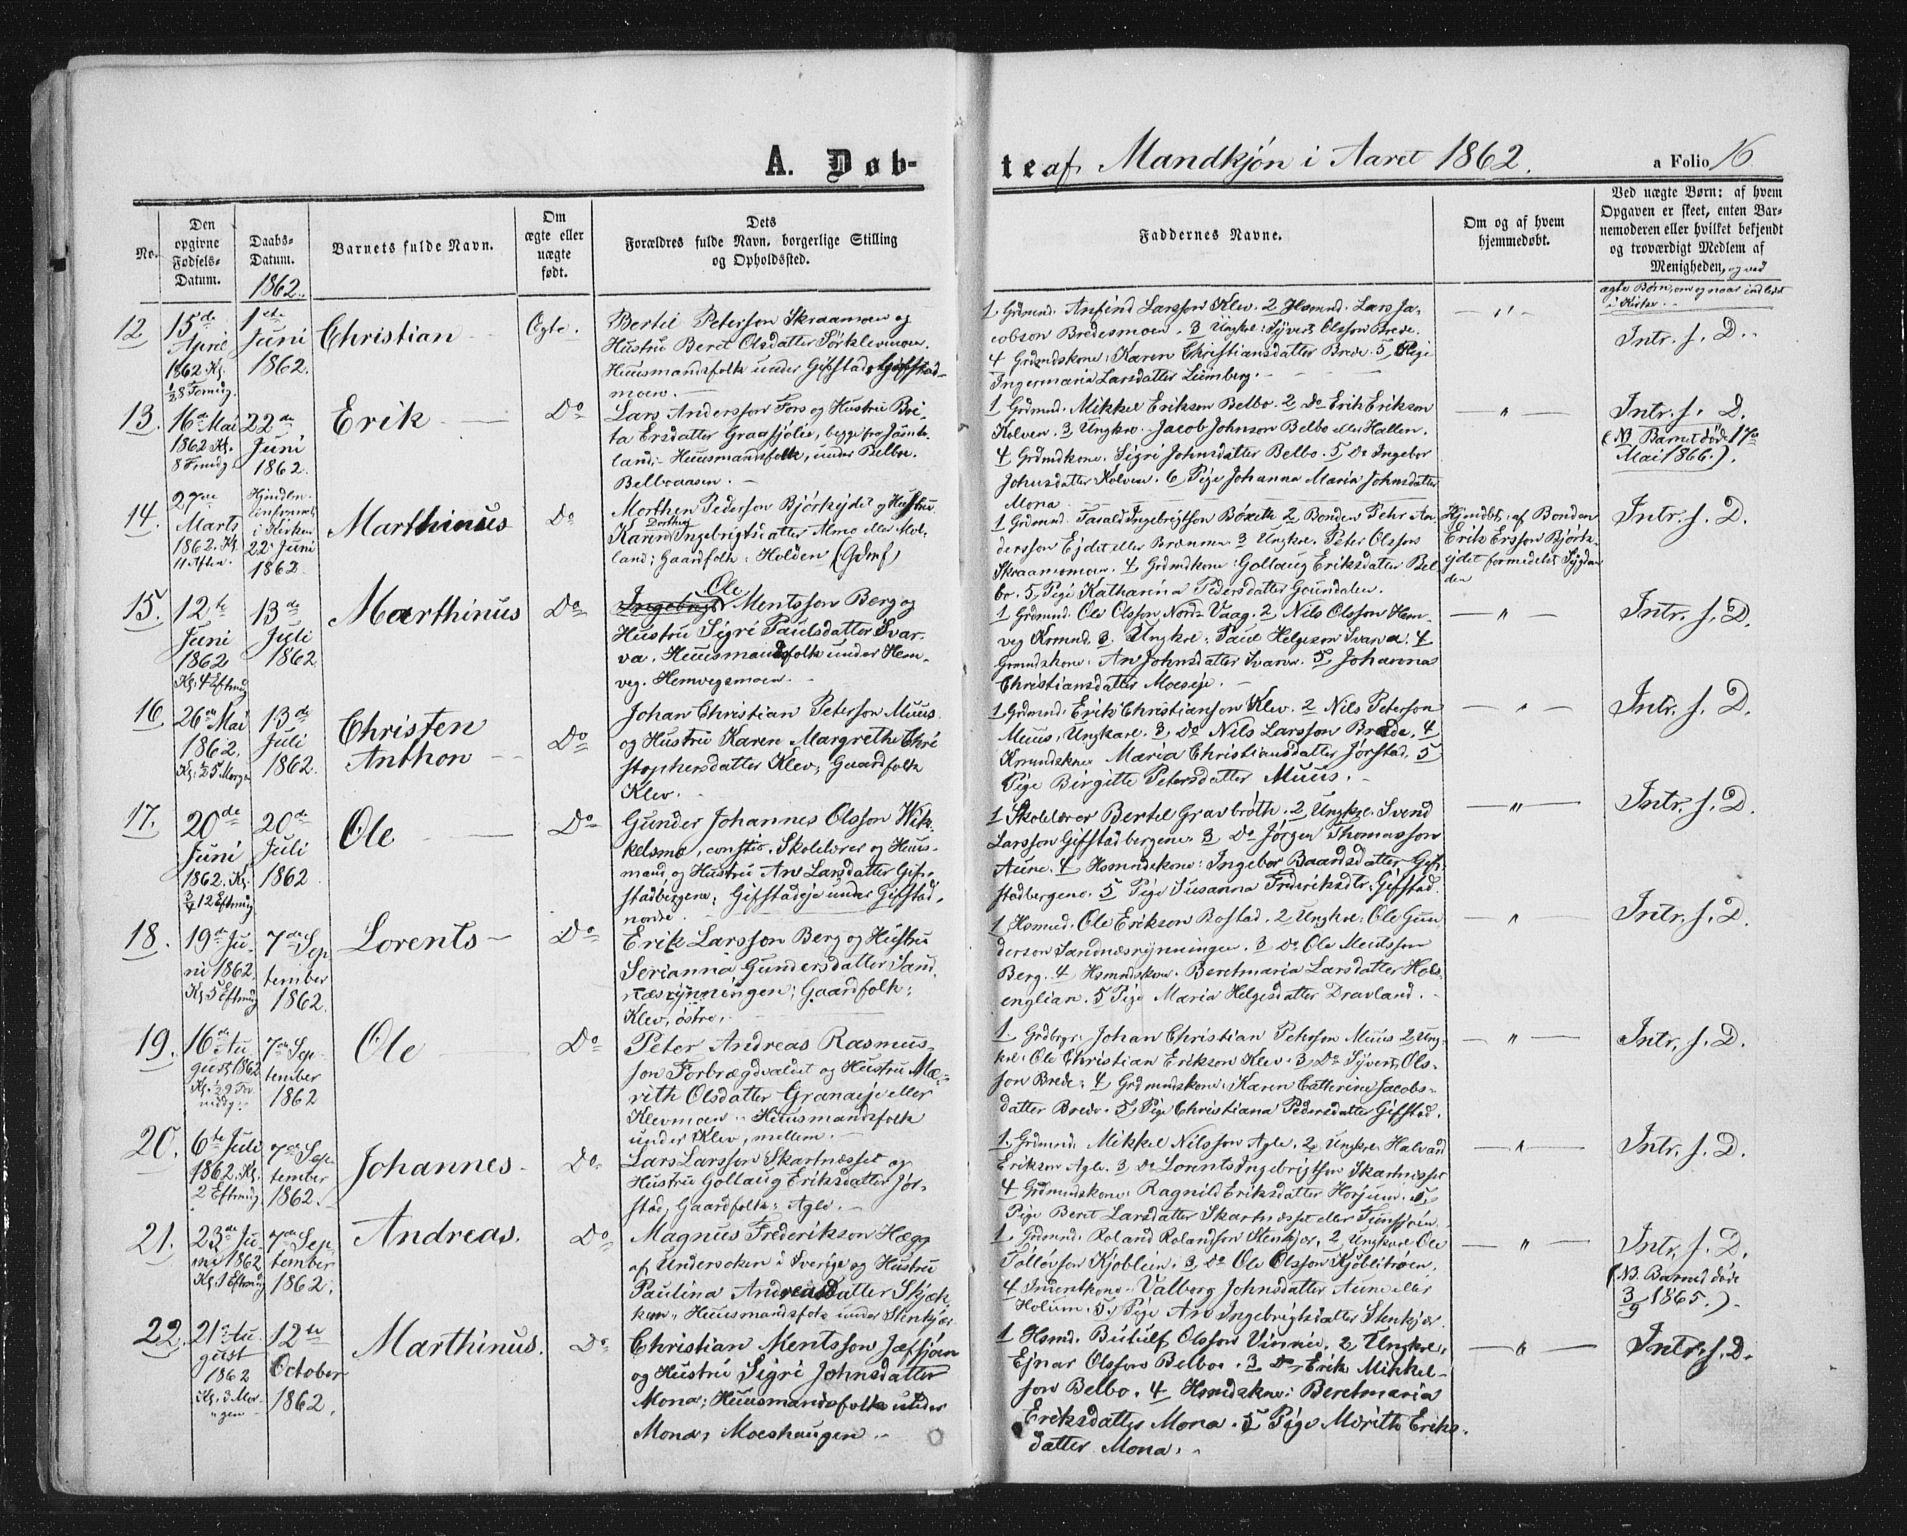 A. Døb-
te af Mandkjøn i Aaret 1862.
a Folio 16
No.
Den opgivne Fødsels-Datum.
Daabs-Datum.
1862.
Barnets fulde Navn.
Om ægte eller uægte født.
Dets Forældres fulde Navn, borgerlige Stilling og Opholdssted.
Faddernes Navne.
Om og af hvem hjemmedøbt.
Ved uægte Børn: af hvem Opgaven er skeet, enten Barnemoderen eller hvilket bekjendt og troværdigt Medlem af Menigheden, og ved
ægte Børn, om og naar indledet i Kirke.
12
15de April 1862. Kl.
1ste Juni 1862.
Christian
Ægte.
Bertil Peterson Skraamoen og
Hustru Beret Olsdatter Sørklevmoen.
Huusmandsfolk under Gifstad, Gifstad-
moen.
1 Grdmnd. Anfind Larsson Klev. 2 Hsmnd. Lars Ja-
cobson Bredesmoen. 3 Ungkr. Syver Olsson Brede.
4 Grdmndskone. Karen Christiansdatter Brede. 5 Pige
Ingermaria Larsdatter Lümberg.
— " —
Intr. f. D.
13.
16de Mai 1862. Kl. 8 Frmdg.
22de Juni 1862.
Erik
Do
Lars Andersson Fors og Hustru Bri-
ta Ersdatter Graasjölie, begge fra Jämte-
land; Huusmandsfolk, under Belbo.
Belboaasen.
1 Grdmnd. Mikkel Erikson Belbo. 2 Do Erik Erikson
Kolven. 3 Ungkr. Jacob Johnson Belbo eller Hallen.
4 Grdmdkone. Sigri Johnsdatter Belbo. 5 Do Ingebor
Johnsdatter Kolven. 6 Pige Johanna Maria Johnsdatter
Mona.
— " —
Intr. f. D.
(NB Barnet døde 17de
Mai 1866.)
14.
27de Marts 1862. Kl. 11 Aften.
i Kirken 22 Juni 1862.
Marthinus
Do
Morthen Pederson Bjørkejdet og Hustru
Karen Dorthea Ingebrigtsdatter Mmo eller Mol-
land; Gaardfolk: Holden
1 Grdmnd. Tarald Ingebrigtson Børeth 2 Bonden Pehr An
dersson Ejdet eller Brænna 3 Ungkr. Peter Olsson
Skraamomoen. 4 Grdmdkone Gollaug Eriksdatter Bel
bo. 5 Pige Katharina Pedersdatter Goundalen.
Hjmdbt. af Bonden
Erik Ersson Bjørk-
ejdet formedelst Sygdom
Intr. f. D.
15.
12te Juni 1862 Kl. 4 Eftmdg
13de Juli 1862
Marthinus
Do
Ole
Ingebrigt Mentsson Berg og
Hustru Sigri Paulsdatter Svar-
va. Huusmandsfolk under Hem-
veg. Hemvegsmoen.
1 Grdmnd. Ole Olsson Nord-Vaag. 2 Nils Olsson Hem-
veg Krmnd. 3 Ungkr. Paul Helgeson Svarva. 4
Grmndskone. An Johnsdatter Svarva. 5 Johanna
Christiansdatter Moeseje.
— " —
Intr. f. D.
16
26de Mai 1862. Kl. ½5 Morgen
13de Juli 1862.
Christen
Anthon
Do
Johan Christian Peterson Muus
og Hustru Karen Margrethe Chri
stophersdatter Klev; Gaardfolk
Klev.
1 Grdmnd. Erik Christianson Klev. 2 Nils Peterson
Muus, Ungkarl. 3 Do Nils Larsson Brede. 4
Krmndskne. Maria Christiansdatter Jørstad. 5
Pige Birgitte Petersdatter Muus.
— " —
Intr. f. D.
17.
20de Juni 1862. Kl. 12 Eftmdg
20de Juli 1862
Ole
Do
Gunder Johannes Olsson Wik-
kelsmo, constit. Skolelærer og Huus-
mand og Hustru An Larsdatter Gif-
stadbergene; Gifstadeje under Gifstad,
nordre.
1 Skolelærer Bertel Gravbrøth. 2 Ungkr. Svend
Larsson Gifstadbergene 3 Do Jørgen Thomasson
Aune. 4 Hsmndskone: Ingebor Baardsdatter Gif-
stadbergene. 5 Pige Susanna Frederiksdtr. Gifstad.
— " —
Intr. f. D.
18.
19de Juni 1862. Kl. 5 Eftmdg
7de September 1862.
Lorents
Do
Erik Larsson Berg og Hustru
Serianna Gundersdatter Sand.
næsrynningen; Gaardfolk;
Klev, østre.
1 Hsmnd. Ole Erikson Bostad. 2 Ungkr. Ole Gun
derson Sandnæsrynningen. 3 Do Ole Mentsson
Berg. 4 Hsmndskone. Beretmaria Larsdatter Hols
englian. 5 Pige Maria Helgesdatter Dravland.
— " —
Intr. f. D
19.
16de August 1862 Kl. ½9 Formidg.
7de September 1862
Ole
Do
Peter Andreas Rasmus-
son Forbrægdvaldet og Hustru Mæ-
rith Olsdatter Granaeje eller
Klevmoen. Huusmandsfolk
under Klev, mellem.
1 Grdbrgr. Johan Christian Peterson Muus 2 Ung
kr. Ole Christian Erikson Klev. 3 Do Syvert Ols-
son Brede: 4 Grdmndskone. Karen Catterine Jacobs-
datter Brede. 5 Pige Christiana Pedersdatter Gifstad.
— " —
Intr. f. D.
20.
6te Juli 1862. Kl. 2 Eftmdg.
7de September 1862.
Johannes
Do
Lars Larsson Skartnæsset og
Hustru Gollaug Eriksdatter Jør-
stad, Gaardfolk: Agle.
1. Grdmnd. Mikkel Nilsson Agle. 2 Ungkr. Halvard
Erikson Agle. 3 Do Lorents Ingebrigtson Skartnæsset
4 Grdmndskone. Ragnild Eriksdatter Horjum. 5
Pige Beret Larsdatter Skartnæsset eller
— " —
Intr. f. D.
21.
23de Juni 1862 Kl. 1 Eftmdg
7de September 1862.
Andreas.
Do
Magnus Frederikson Hægg
af Undersoken i Sverige og Hustru
Paulina Andreasdatter Skjæk-
ken. Huusmandsfolk under Stenkjær
1 Grdmnd. Roland Rolandson Stenkjær. 2 Ungkarl Ole
Tolløfson Kjøblein. 3 Do Ole Olsson Kjøblitrøen.
4 Valborg Johnsdatter Aune eller
Holum. 5 Pige An Ingebrigtsdatter Stenkjær.
— " —
Intr. f. D.
(NB. Barnet døde
3/9 1865.).
22.
21de August 1862 Kl. 3 Morgen
12te October 1862.
Marthinus.
Do
Christian Mentsson Jæfsjøen
og Hustru Sigri Johnsdatter
Mona; Huusmandsfolk under
Mona; Moeshaugen.
1 Hsmd. Butulf Olsson Vinnie. 2 Ungkr.
Ejnar Olsson Belbo. 3 Do Erik Mikkel-
son Belbo. 4 Hsmdskne: Beretmaria
Eriksdatter Mona. 5 Pige Mærith Eriks.
datter Mona.
— " —
Intr. f. D.